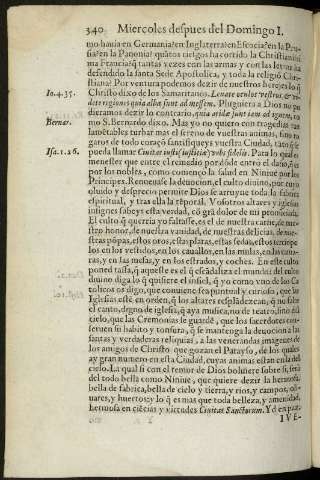 340 Miercoles despues del Domingo I.
mo hauia en Germania? en Inglaterra? en Escocia? en la Prusia? en la Panonia? quãtos riesgos ha corrido la Christianissi
ma Francia? q̃ tantas vezes con las armas y con las letras ha
defendido la santa Sede Apostolica, y toda la religiõ Chris-
tiana? Por ventura podemos dezir de nuestros herejes lo q̃
Io.4.35. Christo dixo de los Samaritanos. Leuate oculos vestros, & vi-
dete regiones quia albæ sunt ad messem. Pluguiera a Dios no pu
dieramos dezir lo contrario, quia aridæ sunt
Bernar. mo S. Bernardo dixo. Mas yo no quiero con tragedias tan
lamẽtables turbar mas el sereno de vuestras animas, sino ro
garos de todo coraçõ santifiqueys vuestra Ciudad, tãto q̃ se
Isa.1.26. pueda llamar Ciuitas iusti, vrbs fidelis. Para lo qual es
menester que entre el remedio por dõde entro el daño, q̃ es
por los nobles, como començo la salud en Niniue por los
Principes. Renueuese la deuocion, el culto diuino, por cuyo
oluido y desprecio permite Dios se arruyne toda la fabrica
espiritual, y tras ella la tẽporal. Vosotros altares y iglesias
insignes sabeys esta verdad, cõ grã dolor de mi
El culto q̃ querria yo faltasse, es el de nuestra carne, de nue-
stro honor, de nuestra vanidad, de nuestras delicias, de nue-
stras põpas, estos oros, estas platas, estas sedas, estos terciope
los en los vestidos, en los cauallos, en las mulas, en las cama-
ras, y en las mesas, y en los estrados, y coches. En este culto
poned tassa, q̃ aqueste es el q̃ escãdaliza el mundo: del culto
diuino diga lo q̃ quisiere el infiel, q̃ yo como vno de los Ca
tolicos os digo, que conuiene sea puntual y curioso, que las
Iglesias estẽ en orden, q̃ los altares resplãdezcan, q̃ no falte
el canto, digno de iglesia, q̃ aya musica, no de teatro, sino del
cielo, que las Cremonias se guardẽ, que los sacerdotes con-
seruen su habito y tonsura, q̃ se mantenga la deuocion a las
santas y verdaderas reliquias, a las venerandas imagenes de
los amigos de Christo que gozan el Parayso, de los quales
ay gran numero en esta Ciudad, cuyas animas estan en la del
cielo. La qual si con el temor de Dios boluiere sobre si, será
del todo bella como Niniue, que quiere dezir la hermosa,
bella de fabrica, bella de cielo y tierra, y rios, y campos, oli-
uares, y huertos: y lo q̃ es mas que toda belleza, y amenidad,
hermosa en ciẽcias y virtudes Ciuitas Sanctorum. Yd en paz.
IVE-